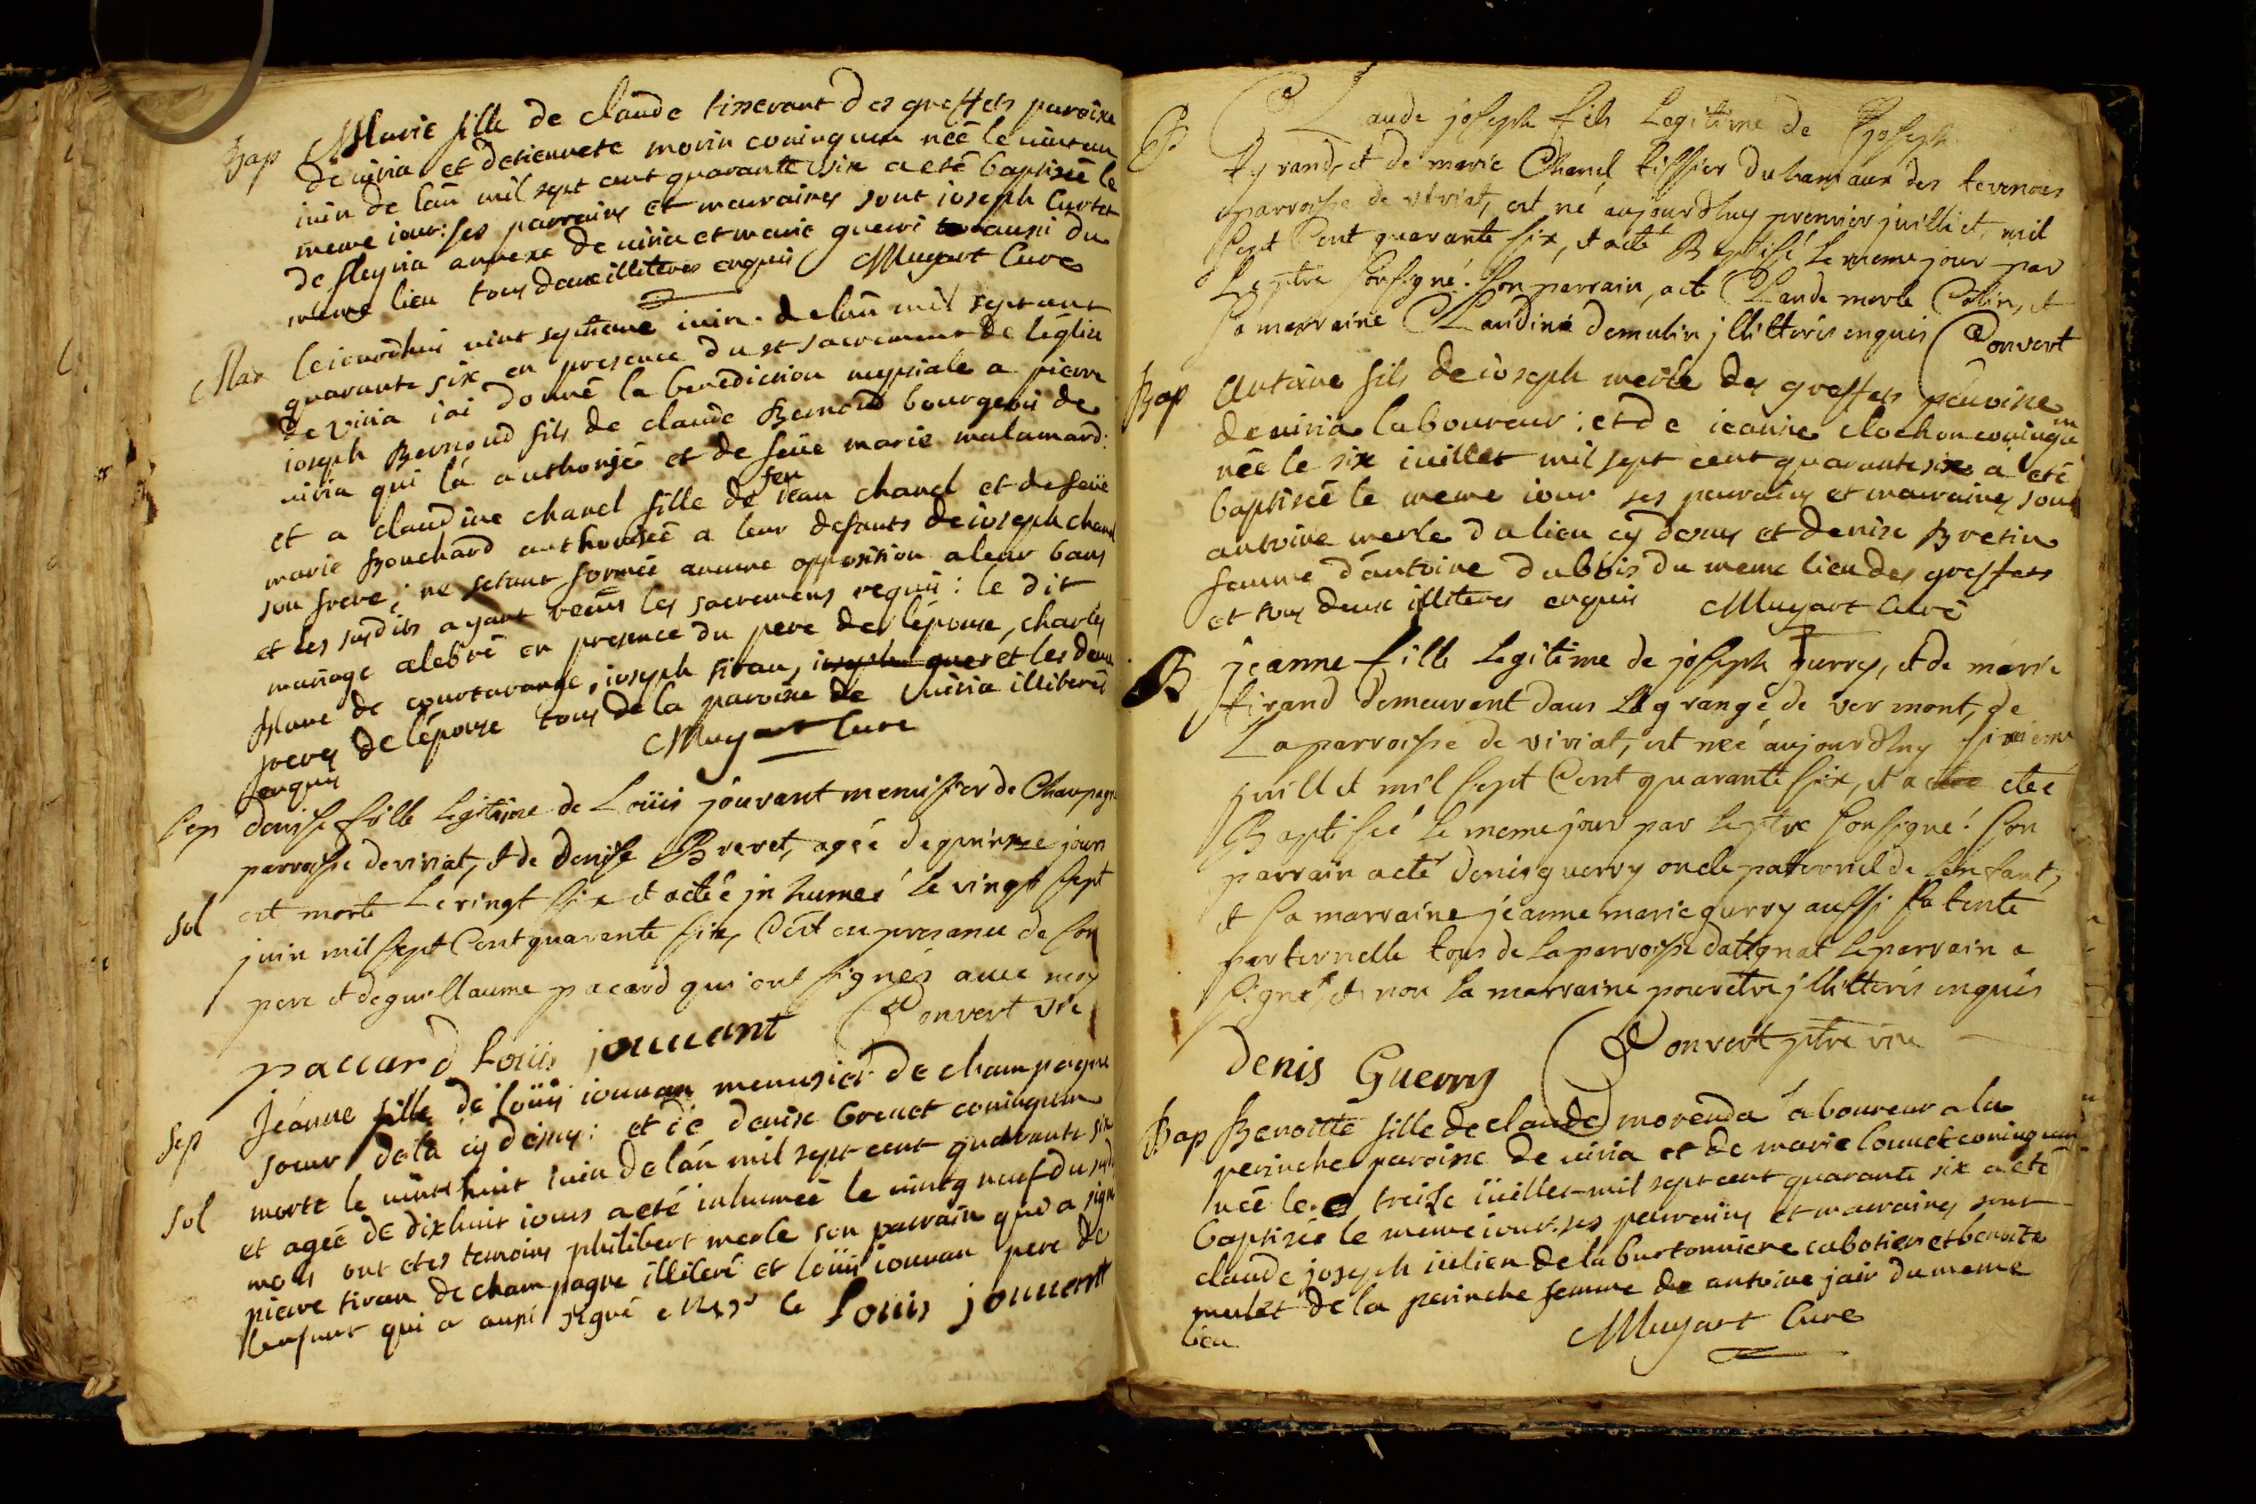 Bap Marie fille de claude tisserant des greffets paroisse
de viria et detiennete morin coniugum néé le vint un
iuin de lan mil sept cent quarante six a eté baptiséé le
meme iour: ses parrains et marraines sont ioseph Curtet
de fleyria annexe de viria et marie guerri aussi du
meme lieu tous deux illiteres enquis Muyart Cure
Mar Ceiourdhui vint septieme iuin de lan mil sept cent
quarante six en presence du st sacrement de léglise
de viria iai donné la benediction nuptiale a pierre
ioseph Bernoud fils de claude Bernoud bourgeois de
viria qui lá authorisé et de feüe marie malamard:
et a claudine chanel fille de feu iean chanel et de feüe
marie Bouchard authoriséé a leur defauts de ioseph chanel
son frere; ne setant forméé aucune opposition a leur bans
et les susdits ayant recüs les sacremens requis: le dit
mariage celebré en presence du pere de lépouse, charles
blanc de courtarange, ioseph tiran, ioseph guer et les deux
freres de lépouse tous de la paroisse de viria illiterés
enquis Muyart Cure
Sep denise fille legitime de Loüis jouvant menusier de Champagne
parroisse de viriat, et de denise Brevet, agéé de quinze jours
Sol est morte Le vingt six et a étéé jnhumeé le vingt sept
juin mil sept Cent quarante six, C'est en presance de son
pere et de guillaume pacard qui ont signés avec moy
Convert vic
paccard Loüis jouuant
Sep Jéanne fille de loüis iouuan menusier de champagne
soeur de la cy dessus: et de denise brevet coniugum
Sol morte le vint huit iuin de lán mil sept cent quarante six
et agéé de dixhuit iours a eté inhuméé le vint neuf du susdit
mois ont etes temoins philibert merle son parrain qui a signé
pierre tiran de champagne illiteré et loüis iouuan pere de
lenfant qui a aussi signé Louis jouuant
B Claude joseph fils Legitime de Joseph
Tyrand, et de marie Chanel tissier du hamaux des tevenons
parroisse de viriat, est né aujourdhuy premier juillet mil
sept Cent quarante six, et a eté Baptisé le meme jour par
Le ptre sousigné. Son parrain, a eté Claude morle Colin, et
sa marraine Claudine demulin jllitterés enquis Convert
Bap Antoine fils de ioseph merle des greffets paroisse
de viria laboureur: et de ieanne clochon coniugum
néé le six iuillet mil sept cent quarante six a eté
baptiséé le meme iour ses parrains et marraines sont
antoine merle du lieu cy dessus et denise Bretin
femme d'antoine dubois du meme lieu des greffets
et tous deux illiteres enquis Muyart Curé
B jeanne fille legitime de joseph gurry, et de marie
tirand demeurant dans la grange de vermont, de
La parroisse de viriat, est neé aujourdhuy sixieme
juillet mil sept Cent quarante six, et a etéé
Baptiseé le meme jour par le ptre sousigné. Son
parrain a eté denis guerry oncle paternel de lenfant,
et sa marraine jeanne marie gurry aussi sa tente
parternelle tous de la parroisse dattignat le parrain a
signé, et non la marraine pour etre jllitterés enquis
Convert ptre vic
denis Guerry
Bap Benoitte fille de claude morenda laboureur a la
perinche paroisse de viria et de marie louuet coniugum
néé le treise iüillet mil sept cent quarante six a eté
baptiséé le meme iour: ses parrains et marraines sont
claude joseph iulien de la burtonniere cabotier et benoite
mulet de la perinche femme de antoine jair du meme
lieu Muyart Cure